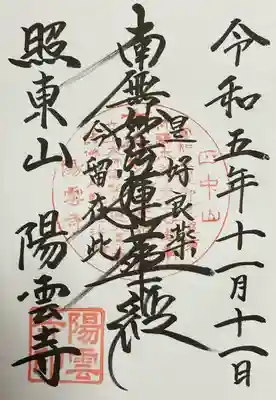 令和五年十一月十一日
是好良薬
南無妙法蓮華経
今留在此
照東山 陽雲寺
陽雲寺